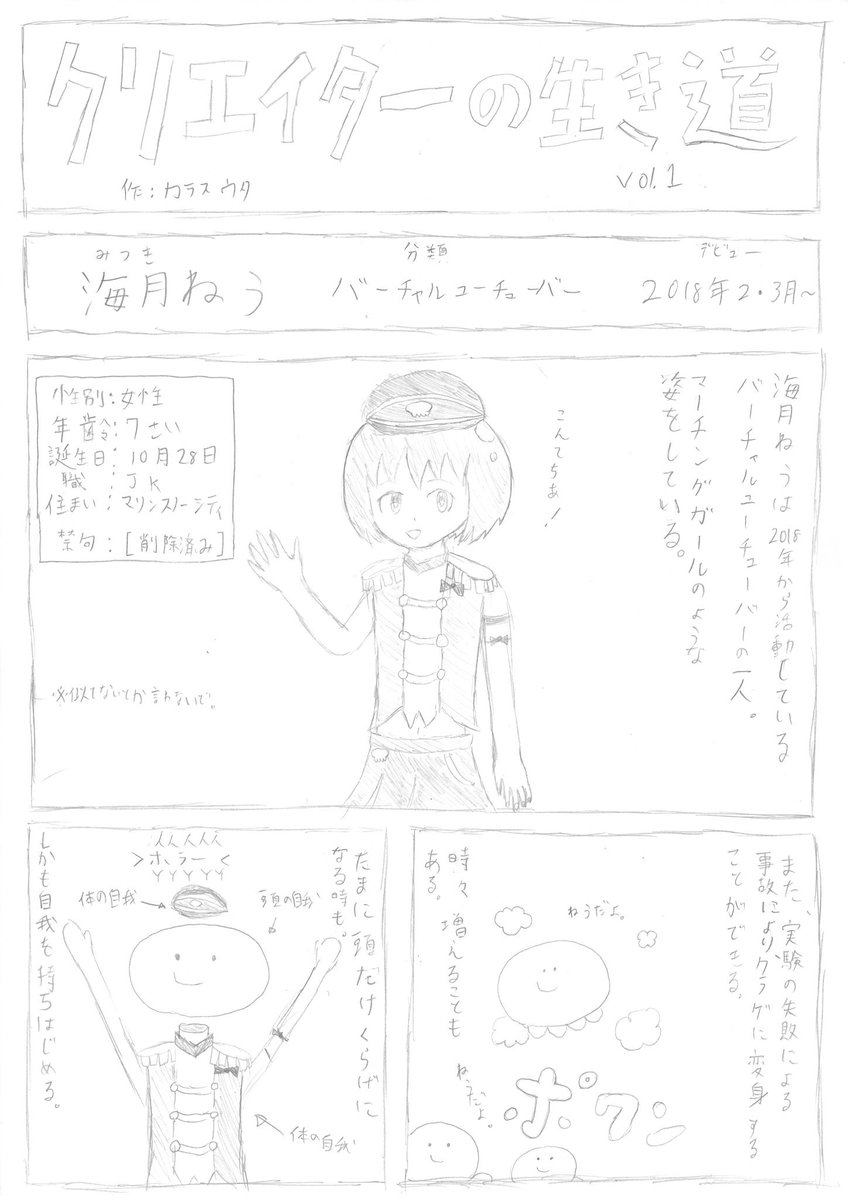 クリエイターの生き道
vol.1
作:カラスウタ
みつき
海月ねぅ
分類
バーチャルユーチューバー
デビュー
2018年2・3月~
海月ねぅは2018年から活動している
バーチャルユーチューバーの一人。
マーチングガールのような
姿をしている。
こんてちあ!
性別:女性
年齢:7さい
誕生日:10月28日
職:JK
住まい:マリンスノーシティ
禁句:[削除済み]
※似てないとか言わないで。
また、実験の失敗による
事故によりクラゲに変身する
ことができる。
ねぅだよ。
時々増えることも
ある。
ねぅだよ。
ポワン
たまに頭だけくらげに
なる時も。
ホラー
体の自我
頭の自我
体の自我
しかも自我を持ちはじめる。